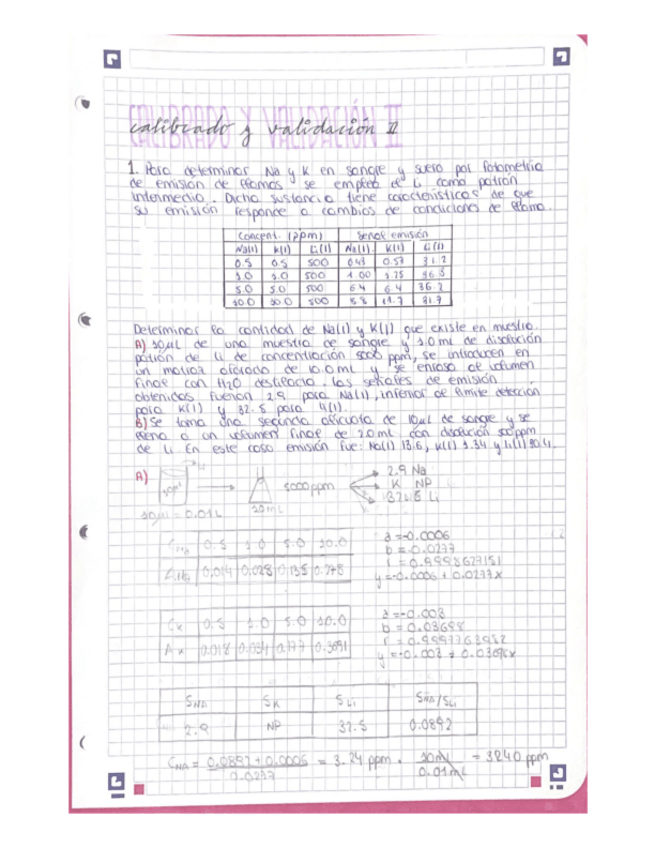 CALIBRADO Y VALIDACIÓN II
calibrado y validación II
1. Para determinar Na y K en sangre y suero por fotometría
de emisión de flamas se empleó el Li como patrón
intermedio. Dicha sustancia tiene características de que
su emisión responde a cambios de condiciones de flama.
Concent. (ppm) Señal emisión
Na(I) K(I) Li(I) Na(I) K(I) Li(I)
0.5 0.5 500 0.43 0.57
1.0 500 1.00
5.0 5.0 500 6.4 6.4 36.2
10.0 10.0 500
Determinar la cantidad de Na(I) y K(I) que existe en muestra.
A) 10μL de una muestra de sangre y 1.0mL de disolución
patrón de Li de concentración 5000 ppm, se introducen en
un matraz aforado de 10.0 mL y se enrasa al volumen
final con H2O destilada. Las señales de emisión
obtenidas fueron 2.9 para Na(I), inferior al límite detección
para K(I) y 32.5 para Li(I).
B) Se toma una segunda alícuota de 10μL de sangre y se
llena a un volumen final de 2.0mL con disolución 500ppm
de Li. En este caso emisión fue: Na(I) 13.6, K(I) 1.34 y Li(I) 30.4.
A) 10μL 5000ppm 2.9 Na
K NP
32.5 Li
10μL = 0.01L 10mL
0.5 1.0 5.0 10.0
0.014 0.028 0.135 0.278
a=-0.0006
b=-0.0277
r=0.9998627151
y=-0.0006+0.0277x
Cx 0.5 1.0 5.0 10.0
Ax 0.018 0.034 0.177
a=-0.003
b=0.03698
y=-0.003+0.03698x
SNa SK SLi SNa/SLi
2.9 NP 32.5 0.0892
CNa = 0.0892+0.0006 / 0.0277 = 3.24 ppm · 10mL / 0.01mL = 3240 ppm